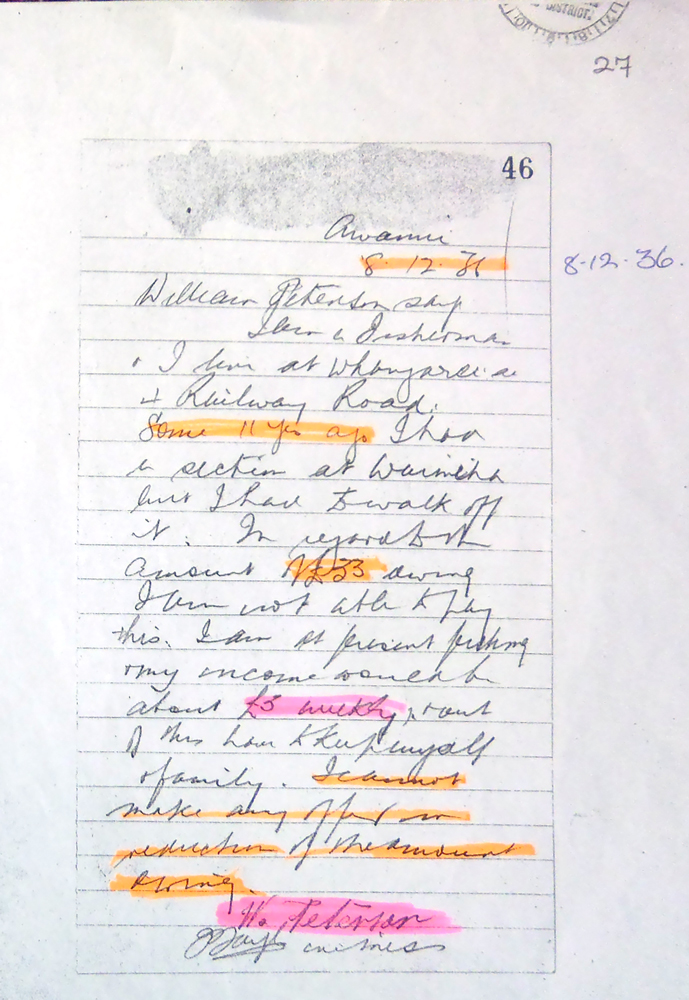 DISTRICT.
27
46
Awanui
8.12.36
8.12.36.
William Peterson say
I am a Fisherman
& I live at Whangarei at
4 Railway Road.
Some 11 yrs ago I had
a section at Waimiha
but I had to walk off
it. In regard to the
amount of £33 owing
I am not able to pay
this. I am at present fishing
& my income would be
about £3 weekly, & out
of this have to keep myself
& family. I cannot
make any offer in
reduction of the amount
owing.
W. Peterson
witness